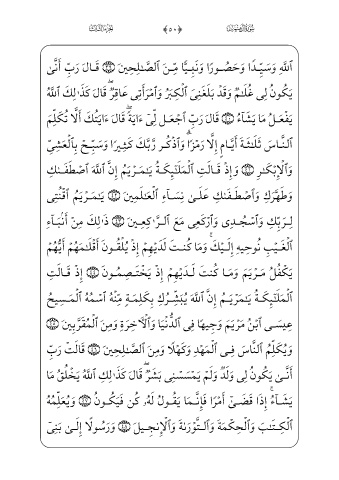 سُورَةُ آلِ عِمْرَان ﴿٥٠﴾ الجُزْءُ الثَّالِث
ٱللَّهِ وَسَيِّدًا وَحَصُورًا وَنَبِيًّا مِّنَ ٱلصَّـٰلِحِينَ ۝ قَالَ رَبِّ أَنَّىٰ
يَكُونُ لِى غُلَـٰمٌ وَقَدْ بَلَغَنِىَ ٱلْكِبَرُ وَٱمْرَأَتِى عَاقِرٌ ۖ قَالَ كَذَٰلِكَ ٱللَّهُ
يَفْعَلُ مَا يَشَآءُ ۝ قَالَ رَبِّ ٱجْعَل لِّىٓ ءَايَةً ۖ قَالَ ءَايَتُكَ أَلَّا تُكَلِّمَ
ٱلنَّاسَ ثَلَـٰثَةَ أَيَّامٍ إِلَّا رَمْزًا ۗ وَٱذْكُر رَّبَّكَ كَثِيرًا وَسَبِّحْ بِٱلْعَشِىِّ
وَٱلْإِبْكَـٰرِ ۝ وَإِذْ قَالَتِ ٱلْمَلَـٰٓئِكَةُ يَـٰمَرْيَمُ إِنَّ ٱللَّهَ ٱصْطَفَىٰكِ
وَطَهَّرَكِ وَٱصْطَفَىٰكِ عَلَىٰ نِسَآءِ ٱلْعَـٰلَمِينَ ۝ يَـٰمَرْيَمُ ٱقْنُتِى
لِرَبِّكِ وَٱسْجُدِى وَٱرْكَعِى مَعَ ٱلرَّٰكِعِينَ ۝ ذَٰلِكَ مِنْ أَنۢبَآءِ
ٱلْغَيْبِ نُوحِيهِ إِلَيْكَ ۚ وَمَا كُنتَ لَدَيْهِمْ إِذْ يُلْقُونَ أَقْلَـٰمَهُمْ أَيُّهُمْ
يَكْفُلُ مَرْيَمَ وَمَا كُنتَ لَدَيْهِمْ إِذْ يَخْتَصِمُونَ ۝ إِذْ قَالَتِ
ٱلْمَلَـٰٓئِكَةُ يَـٰمَرْيَمُ إِنَّ ٱللَّهَ يُبَشِّرُكِ بِكَلِمَةٍ مِّنْهُ ٱسْمُهُ ٱلْمَسِيحُ
عِيسَى ٱبْنُ مَرْيَمَ وَجِيهًا فِى ٱلدُّنْيَا وَٱلْـَٔاخِرَةِ وَمِنَ ٱلْمُقَرَّبِينَ ۝
وَيُكَلِّمُ ٱلنَّاسَ فِى ٱلْمَهْدِ وَكَهْلًا وَمِنَ ٱلصَّـٰلِحِينَ ۝ قَالَتْ رَبِّ
أَنَّىٰ يَكُونُ لِى وَلَدٌ وَلَمْ يَمْسَسْنِى بَشَرٌ ۖ قَالَ كَذَٰلِكِ ٱللَّهُ يَخْلُقُ مَا
يَشَآءُ ۚ إِذَا قَضَىٰٓ أَمْرًا فَإِنَّمَا يَقُولُ لَهُۥ كُن فَيَكُونُ ۝ وَيُعَلِّمُهُ
ٱلْكِتَـٰبَ وَٱلْحِكْمَةَ وَٱلتَّوْرَىٰةَ وَٱلْإِنجِيلَ ۝ وَرَسُولًا إِلَىٰ بَنِىٓ